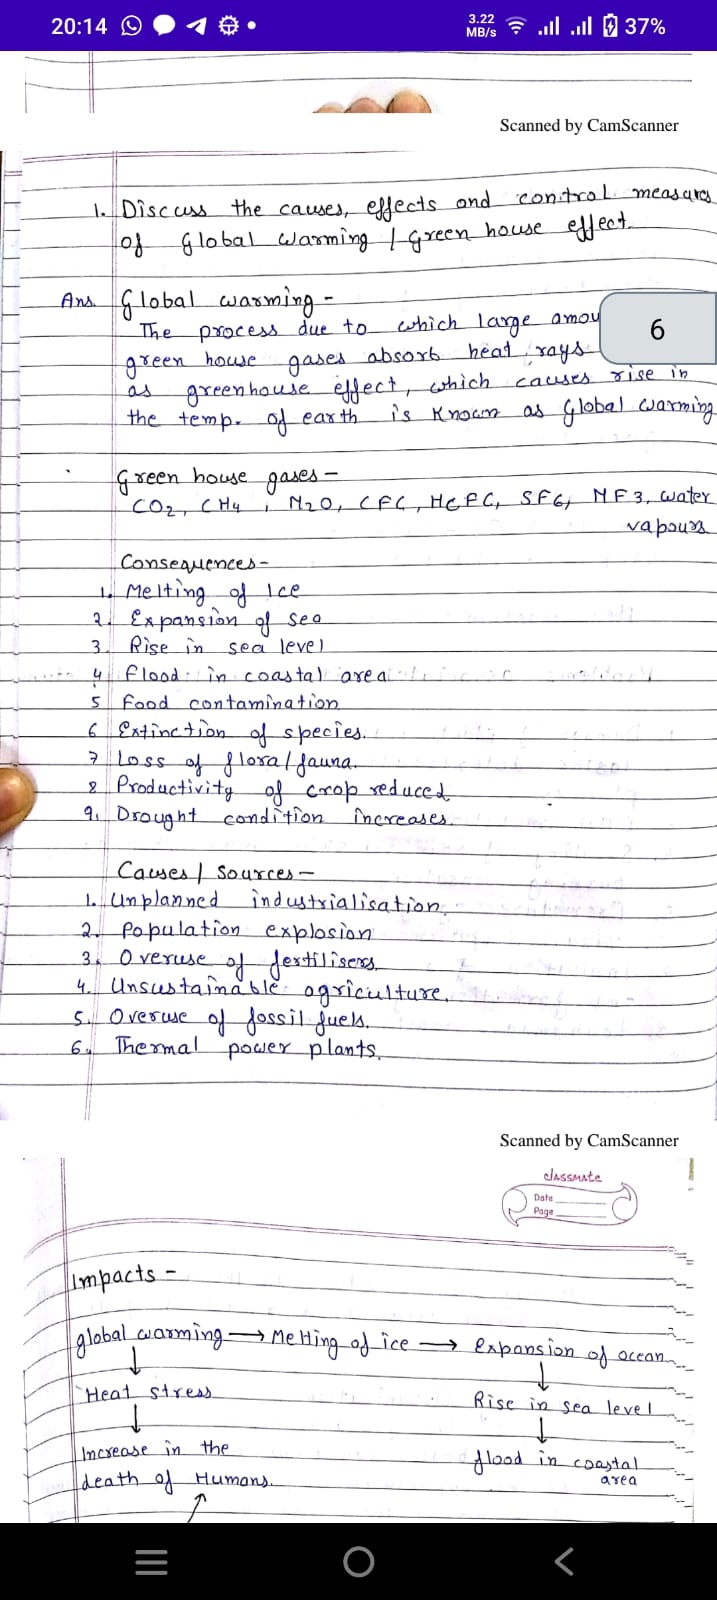 20:14
3.22 MB/s
37%
Scanned by CamScanner
1. Discuss the causes, effects and control measures
of Global warming / Green house effect.
Ans. Global warming -
The process due to which large amou
6
green house gases absorb heat rays
as greenhouse effect, which causes rise in
the temp. of earth is known as Global warming
Green house gases -
CO2, CH4, N2O, CFC, HCFC, SF6, NF3, water
vapours
Consequences -
1. Melting of Ice
2. Expansion of sea
3. Rise in sea level
4 flood in coastal area
5 Food contamination
6 Extinction of species.
7 Loss of flora/fauna.
8 Productivity of crop reduced
9. Drought condition increases.
Causes / Sources -
1. Unplanned industrialisation.
2. Population explosion
3. Overuse of fertilisers.
4. Unsustainable agriculture.
5. Overuse of fossil fuels.
6. Thermal power plants.
Scanned by CamScanner
classmate
Date
Page
Impacts -
global warming → Melting of ice → Expansion of ocean
↓ ↓
Heat stress Rise in sea level
↓ ↓
Increase in the flood in coastal
death of Humans. area